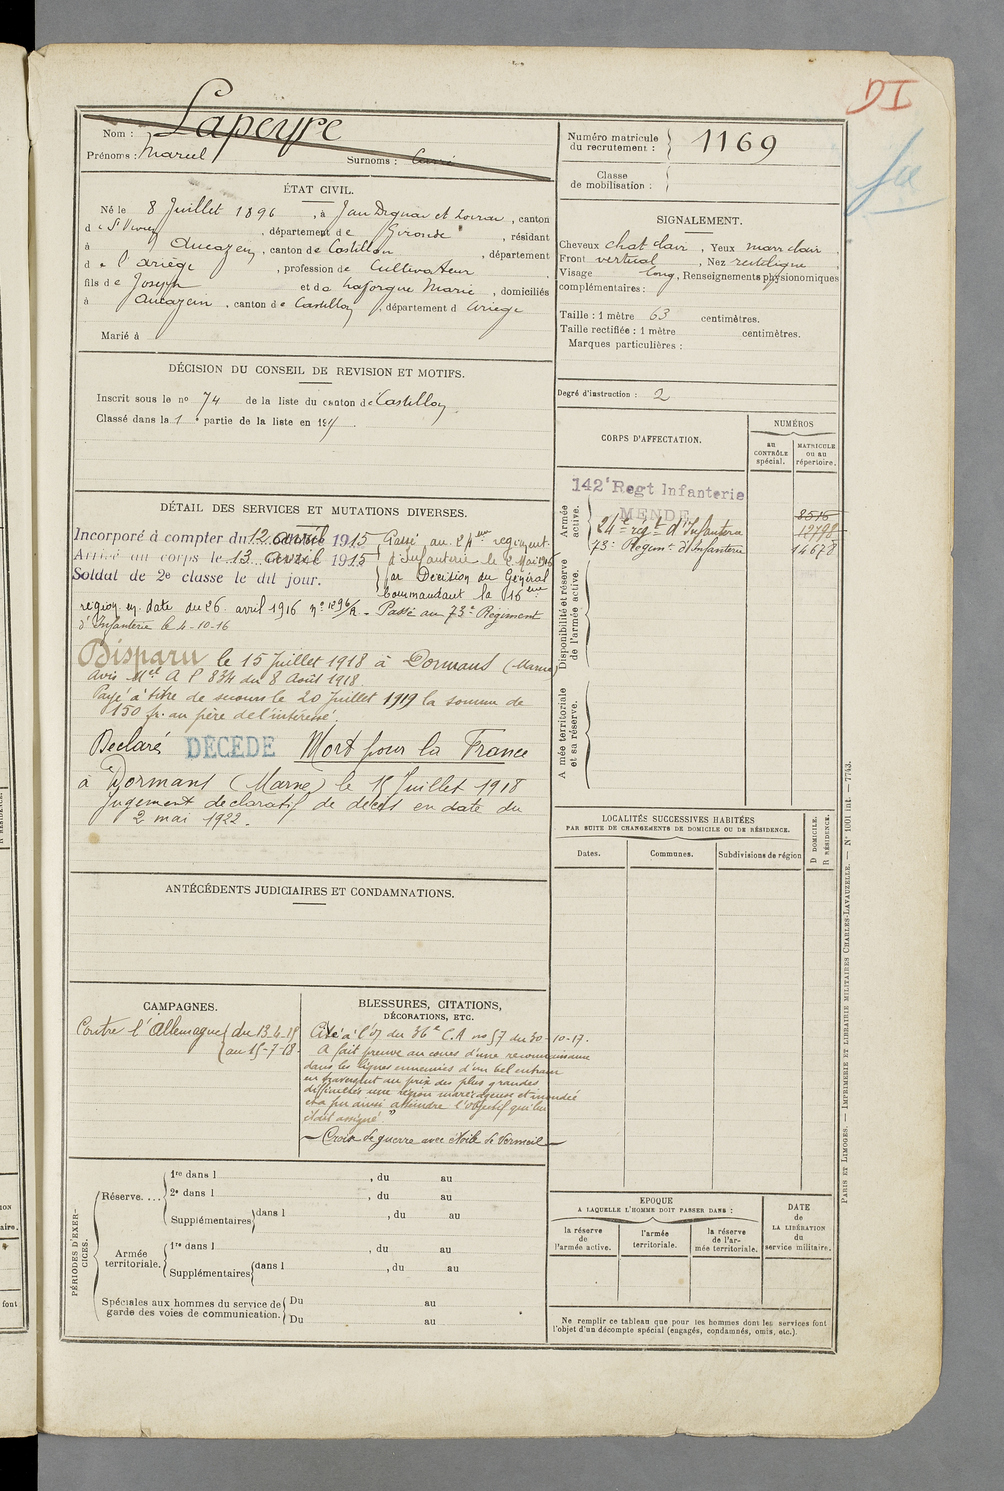 DI
Nom : Lapeyre
Prénoms : Marcel Surnoms :
Numéro matricule du recrutement : 1169
Classe de mobilisation :
ÉTAT CIVIL.
Né le 8 Juillet 1896, à Jean Dignac et Loirac, canton
d e St Vivien, département de Gironde, résidant
à Aucazein, canton de Castillon, département
d e l'Ariège, profession de Cultivateur
fils de Joseph et de Laforgue Marie, domiciliés
à Aucazein, canton de Castillon, département d Ariège
Marié à
SIGNALEMENT.
Cheveux chat clair, Yeux marr clair,
Front vertical, Nez rectiligne,
Visage long, Renseignements physionomiques
complémentaires :
Taille : 1 mètre 63 centimètres.
Taille rectifiée : 1 mètre centimètres.
Marques particulières :
Degré d'instruction : 2
DÉCISION DU CONSEIL DE REVISION ET MOTIFS.
Inscrit sous le no 74 de la liste du canton de Castillon
Classé dans la 1 e partie de la liste en 191
DÉTAIL DES SERVICES ET MUTATIONS DIVERSES.
Incorporé à compter du 12 avril 1915
Arrivé au corps le 13 avril 1915
Soldat de 2e classe le dit jour.
Passé au 24 eme regiment
d'Infanterie le 2 Mai 1916
par Decision du Général
Commandant la 16 eme
region en date du 26 avril 1916 no 1296/R - Passé au 73e Régiment
d'Infanterie le 4-10-16
Disparu le 15 Juillet 1918 à Dormans (Marne)
Avis Mel A P 834 du 8 Août 1918.
Payé à titre de secours le 20 Juillet 1919 la somme de
150 fr. au père de l'intéressé.
Declaré DÉCÉDÉ Mort pour la France
à Dormans (Marne) le 15 Juillet 1918
Jugement déclaratif de décès en date du
2 mai 1922.
CORPS D'AFFECTATION.
NUMÉROS
au CONTRÔLE spécial.
MATRICULE ou au répertoire.
Armée active.
142e Regt Infanterie
MENDE
8515
24e régt d'Infanterie 12798
73e Régimt d'Infanterie 14678
Disponibilité et réserve de l'armée active.
Armée territoriale et sa réserve.
LOCALITÉS SUCCESSIVES HABITÉES
PAR SUITE DE CHANGEMENTS DE DOMICILE OU DE RÉSIDENCE.
Dates. Communes. Subdivisions de région
D DOMICILE.
R RÉSIDENCE.
ANTÉCÉDENTS JUDICIAIRES ET CONDAMNATIONS.
CAMPAGNES.
Contre l'Allemagne du 13-4-15
au 15-7-18.
BLESSURES, CITATIONS,
DÉCORATIONS, ETC.
Cité à l'O du 36e C.A no 57 du 30-10-17.
A fait preuve au cours d'une reconnaissance
dans les lignes ennemies d'un bel entrain
en traversant au prix des plus grandes
difficultés une région marécageuse et inondée
et a pu ainsi atteindre l'objectif qui lui
était assigné"
Croix de guerre avec étoile de Vermeil
PÉRIODES D'EXERCICES.
Réserve....
1re dans l , du au
2e dans l , du au
Supplémentaires dans l , du au
Armée territoriale.
1re dans l , du au
Supplémentaires dans l , du au
Spéciales aux hommes du service de garde des voies de communication.
Du au
Du au
EPOQUE
A LAQUELLE L'HOMME DOIT PASSER DANS :
la réserve de l'armée active.
l'armée territoriale.
la réserve de l'armée territoriale.
DATE de LA LIBÉRATION du service militaire.
Ne remplir ce tableau que pour les hommes dont les services font
l'objet d'un décompte spécial (engagés, condamnés, omis, etc.).
PARIS ET LIMOGES. — IMPRIMERIE ET LIBRAIRIE MILITAIRES CHARLES-LAVAUZELLE. — No 1001 int. — 7743.